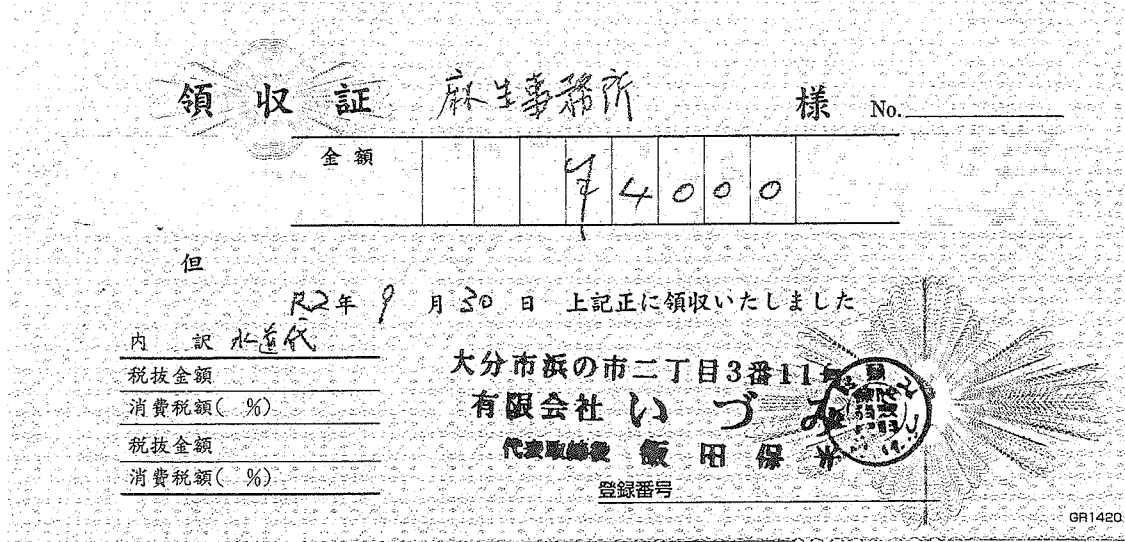 領収証 麻生事務所 様 No.
金額 ¥4000
但
R2年 9月 30日 上記正に領収いたしました
内訳 水道代
税抜金額
消費税額( %)
税抜金額
消費税額( %)
大分市浜の市二丁目3番11号
有限会社 いづみ
代表取締役 飯田保
登録番号
GR1420